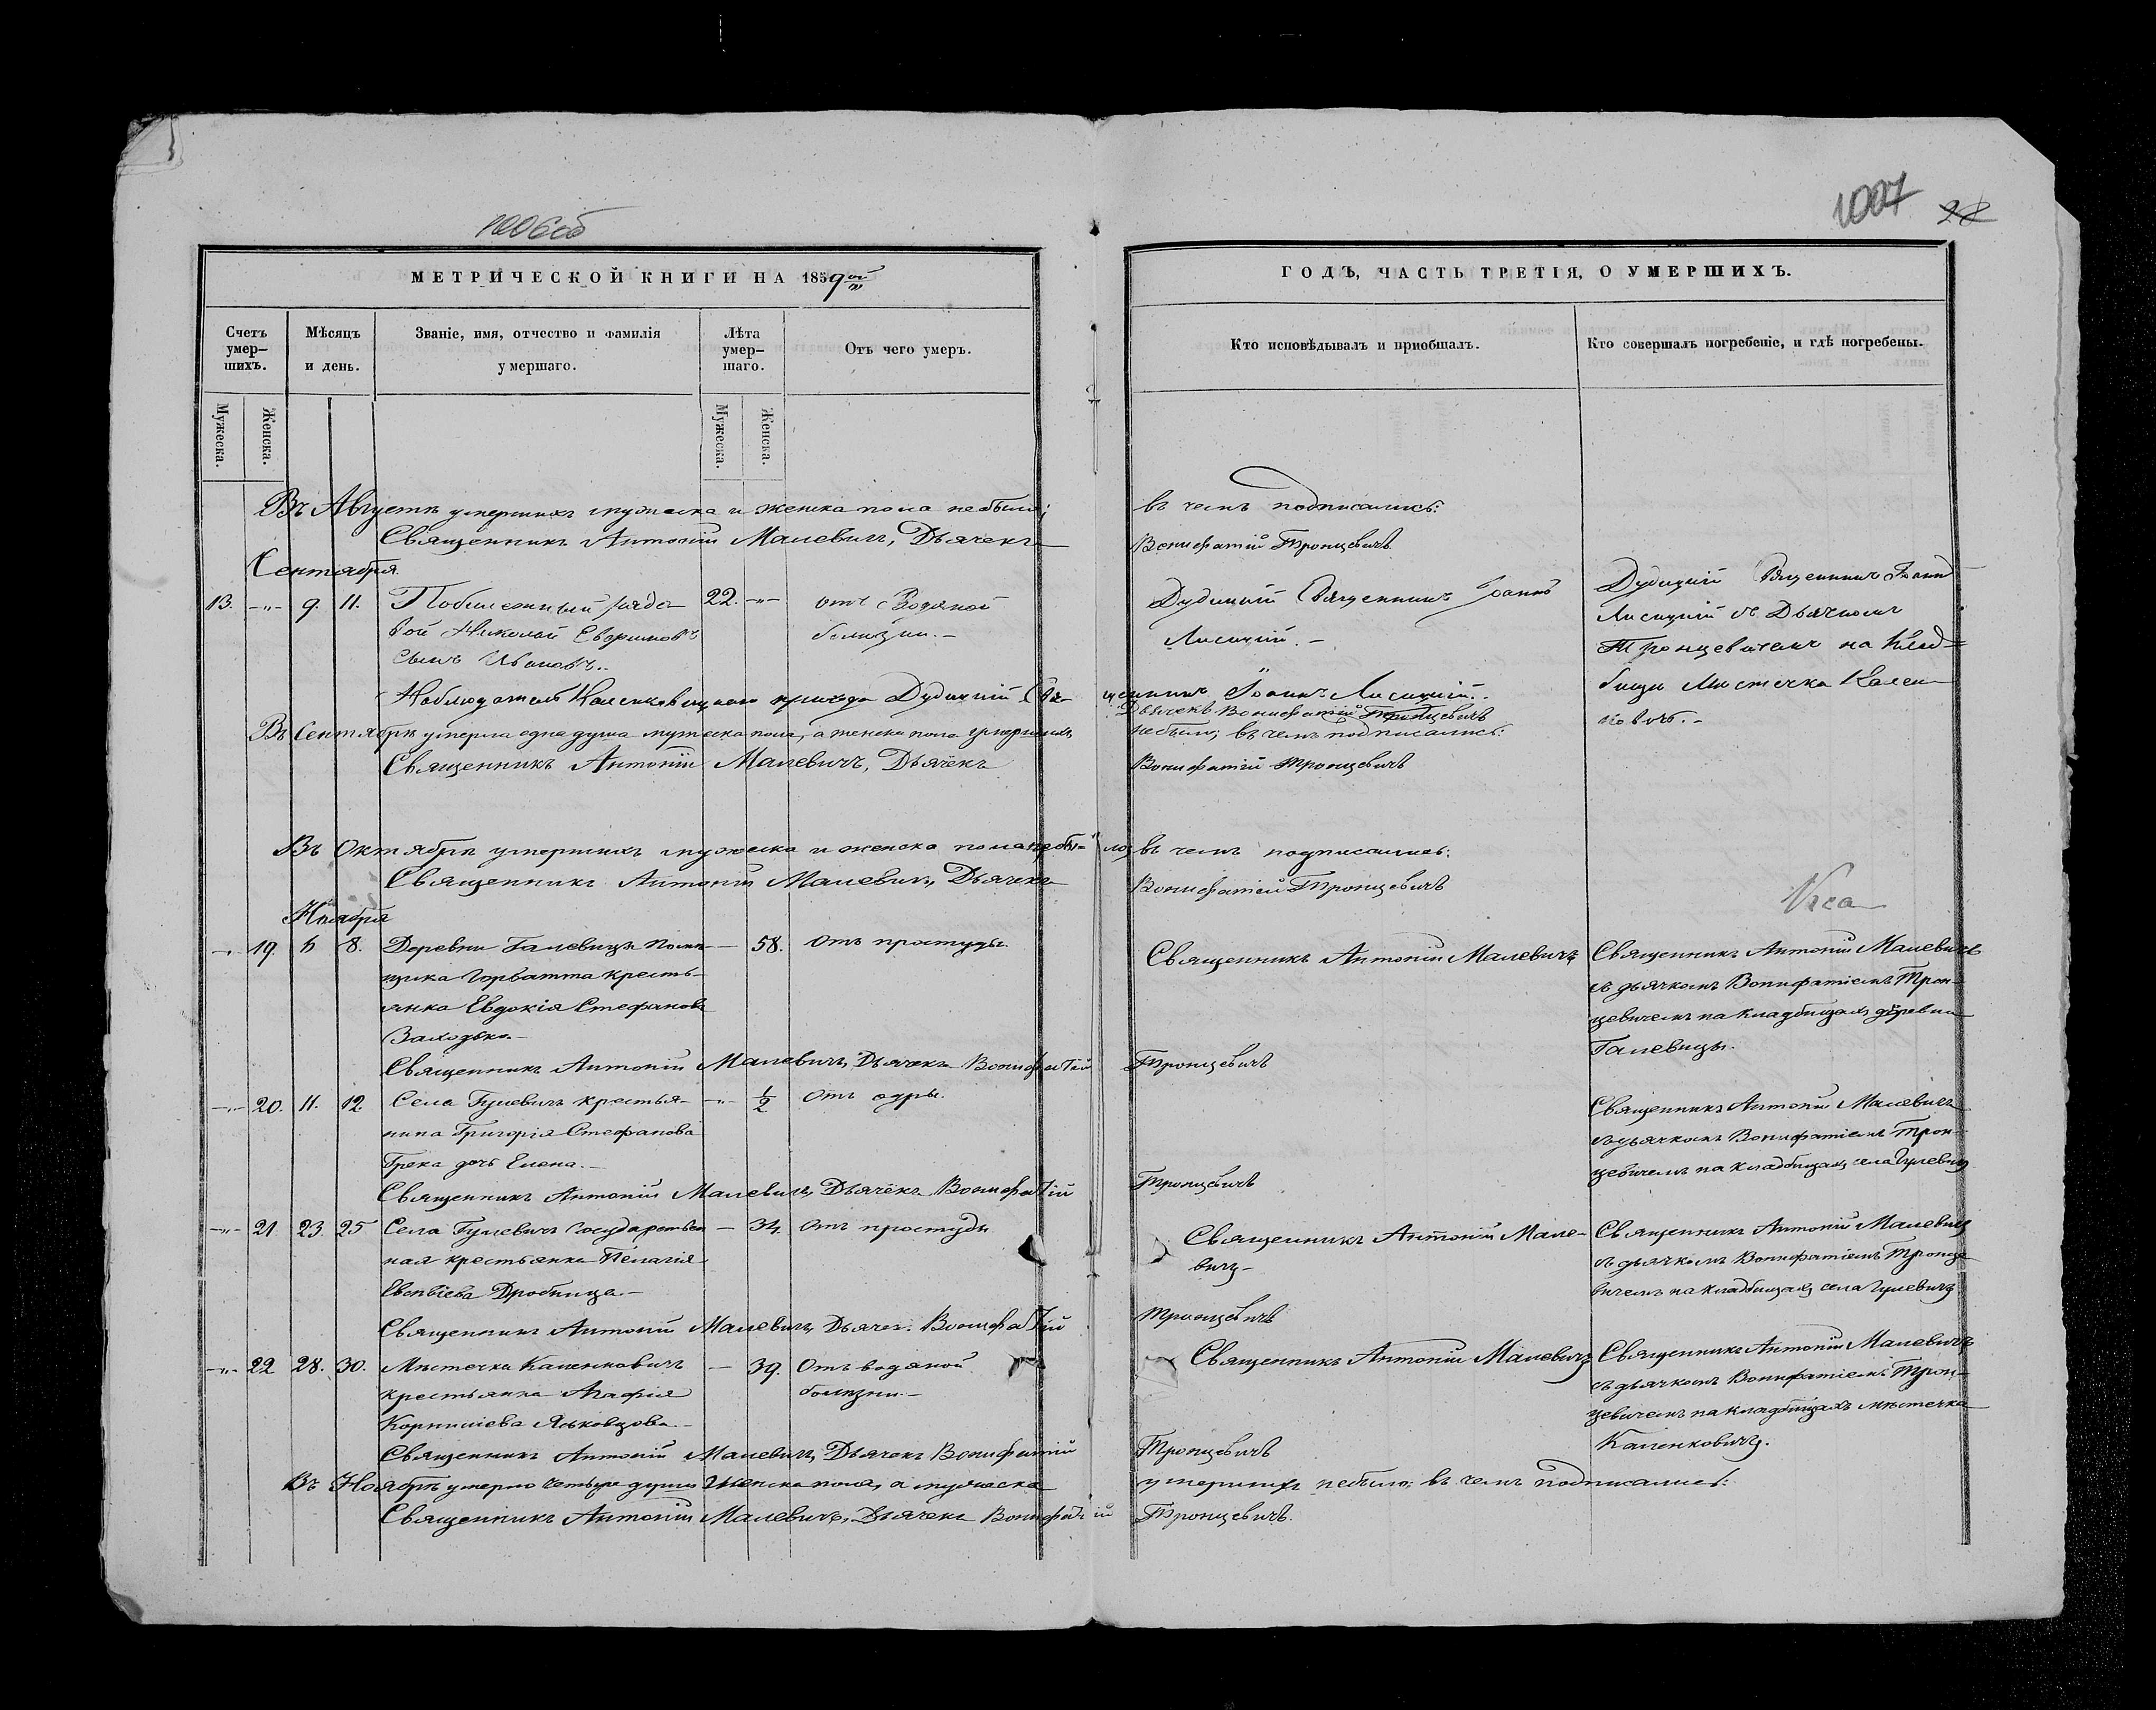 1006об
1007 28
МЕТРИЧЕСКОЙ КНИГИ НА 1859 ой
Счетъ умер-шихъ.
Мѣсяцъ и день.
Званіе, имя, отчество и фамилія умершаго.
Лѣта умер-шаго.
Отъ чего умеръ.
Мужеска.
Женска.
Мужеска.
Женска.
Въ Августѣ умершихъ мужеска и женска пола небыло;
Священникъ Антоній Малевичъ, Дьячекъ
Сентября
13. -"- 9. 11. 22. -"- отъ Водяной
вой Николай
болѣзни.-
сынъ Ивановъ..
Наблюдатель Каленковицкаго прихода Дудицкій Свя-
Въ Сентябрѣ умерла одна душа мужеска пола, а женска пола умершихъ
Священникъ Антоній Малевичъ, Дьячекъ
Въ Октябрѣ умершихъ мужеска и женска пола небы-
Священникъ Антоній Малевичъ, Дьячекъ
Ноября
-"- 19. 8. Деревни Галевицъ помѣ- — 58. Отъ простуды.
щика Горватта кресть-
янка Евдокія Стефанова
Заходько.-
Священникъ Антоній Малевичъ, Дьячекъ Вонифатій
-"- 20. 11. 12. Села Гулевичъ крестья- -"- 1/2 Отъ одры.
нина Григорія Стефанова
Грека дочь Елена.-
Священникъ Антоній Малевичъ, Дьячекъ Вонифатій
-"- 21. 23. 25 Села Гулевичъ Государствен — 34. Отъ простуды
ная крестьянка Пелагія
Дробница.-
Священникъ Антоній Малевичъ, Дьячек. Вонифатій
-"- 22 28. 30. Мѣстечка Каленковичъ — 39. Отъ водяной
крестьянка Агафія болѣзни.-
Корниліева
Священникъ Антоній Малевичъ, Дьячекъ Вонифатій
Въ Ноябрѣ умерло четыре души женска пола, а мужеска
Священникъ Антоній Малевичъ, Дьячекъ Вонифатій
ГОДЪ, ЧАСТЬ ТРЕТІЯ, О УМЕРШИХЪ.
Кто исповѣдывалъ и пріобщалъ.
Кто совершалъ погребеніе, и гдѣ погребены.
въ чемъ подписались:
Вонифатій Тронцевичъ
Дудицкій Священникъ Іоаннъ
Лисицкій.-
Дудицкій Священникъ Іоаннъ
Лисицкій съ Дьячкомъ
Тронцевичемъ на Клад-
бищи Мѣстечка Кален-
ковичъ.-
щенникъ Іоаннъ Лисицкій.
Дьячекъ Вонифатій Тронцевичъ
небыло; въ чемъ подписались:
Вонифатій Тронцевичъ
ло, въ чемъ подписались:
Вонифатій Тронцевичъ
Священникъ Антоній Малевичъ
Священникъ Антоній Малевичъ
съ дьячкомъ Вонифатіемъ Трон-
цевичемъ на кладбищахъ деревни
Галевицы.
Тронцевичъ
Священникъ Антоній Малевичъ
съ дьячкомъ Вонифатіемъ Трон-
цевичемъ на кладбищахъ села Гулевичъ
Тронцевичъ
Священникъ Антоній Мале-
вичъ-
Священникъ Антоній Малевичъ
съ дьячкомъ Вонифатіемъ Тронце
вичемъ на кладбищахъ села Гулевичъ
Тронцевичъ
Священникъ Антоній Малевичъ
Священникъ Антоній Малевичъ
съ дьячкомъ Вонифатіемъ Трон-
цевичемъ на кладбищахъ мѣстечка
Каленковичъ.
Тронцевичъ
умершихъ небыло; въ чемъ подписались:
Тронцевичъ.